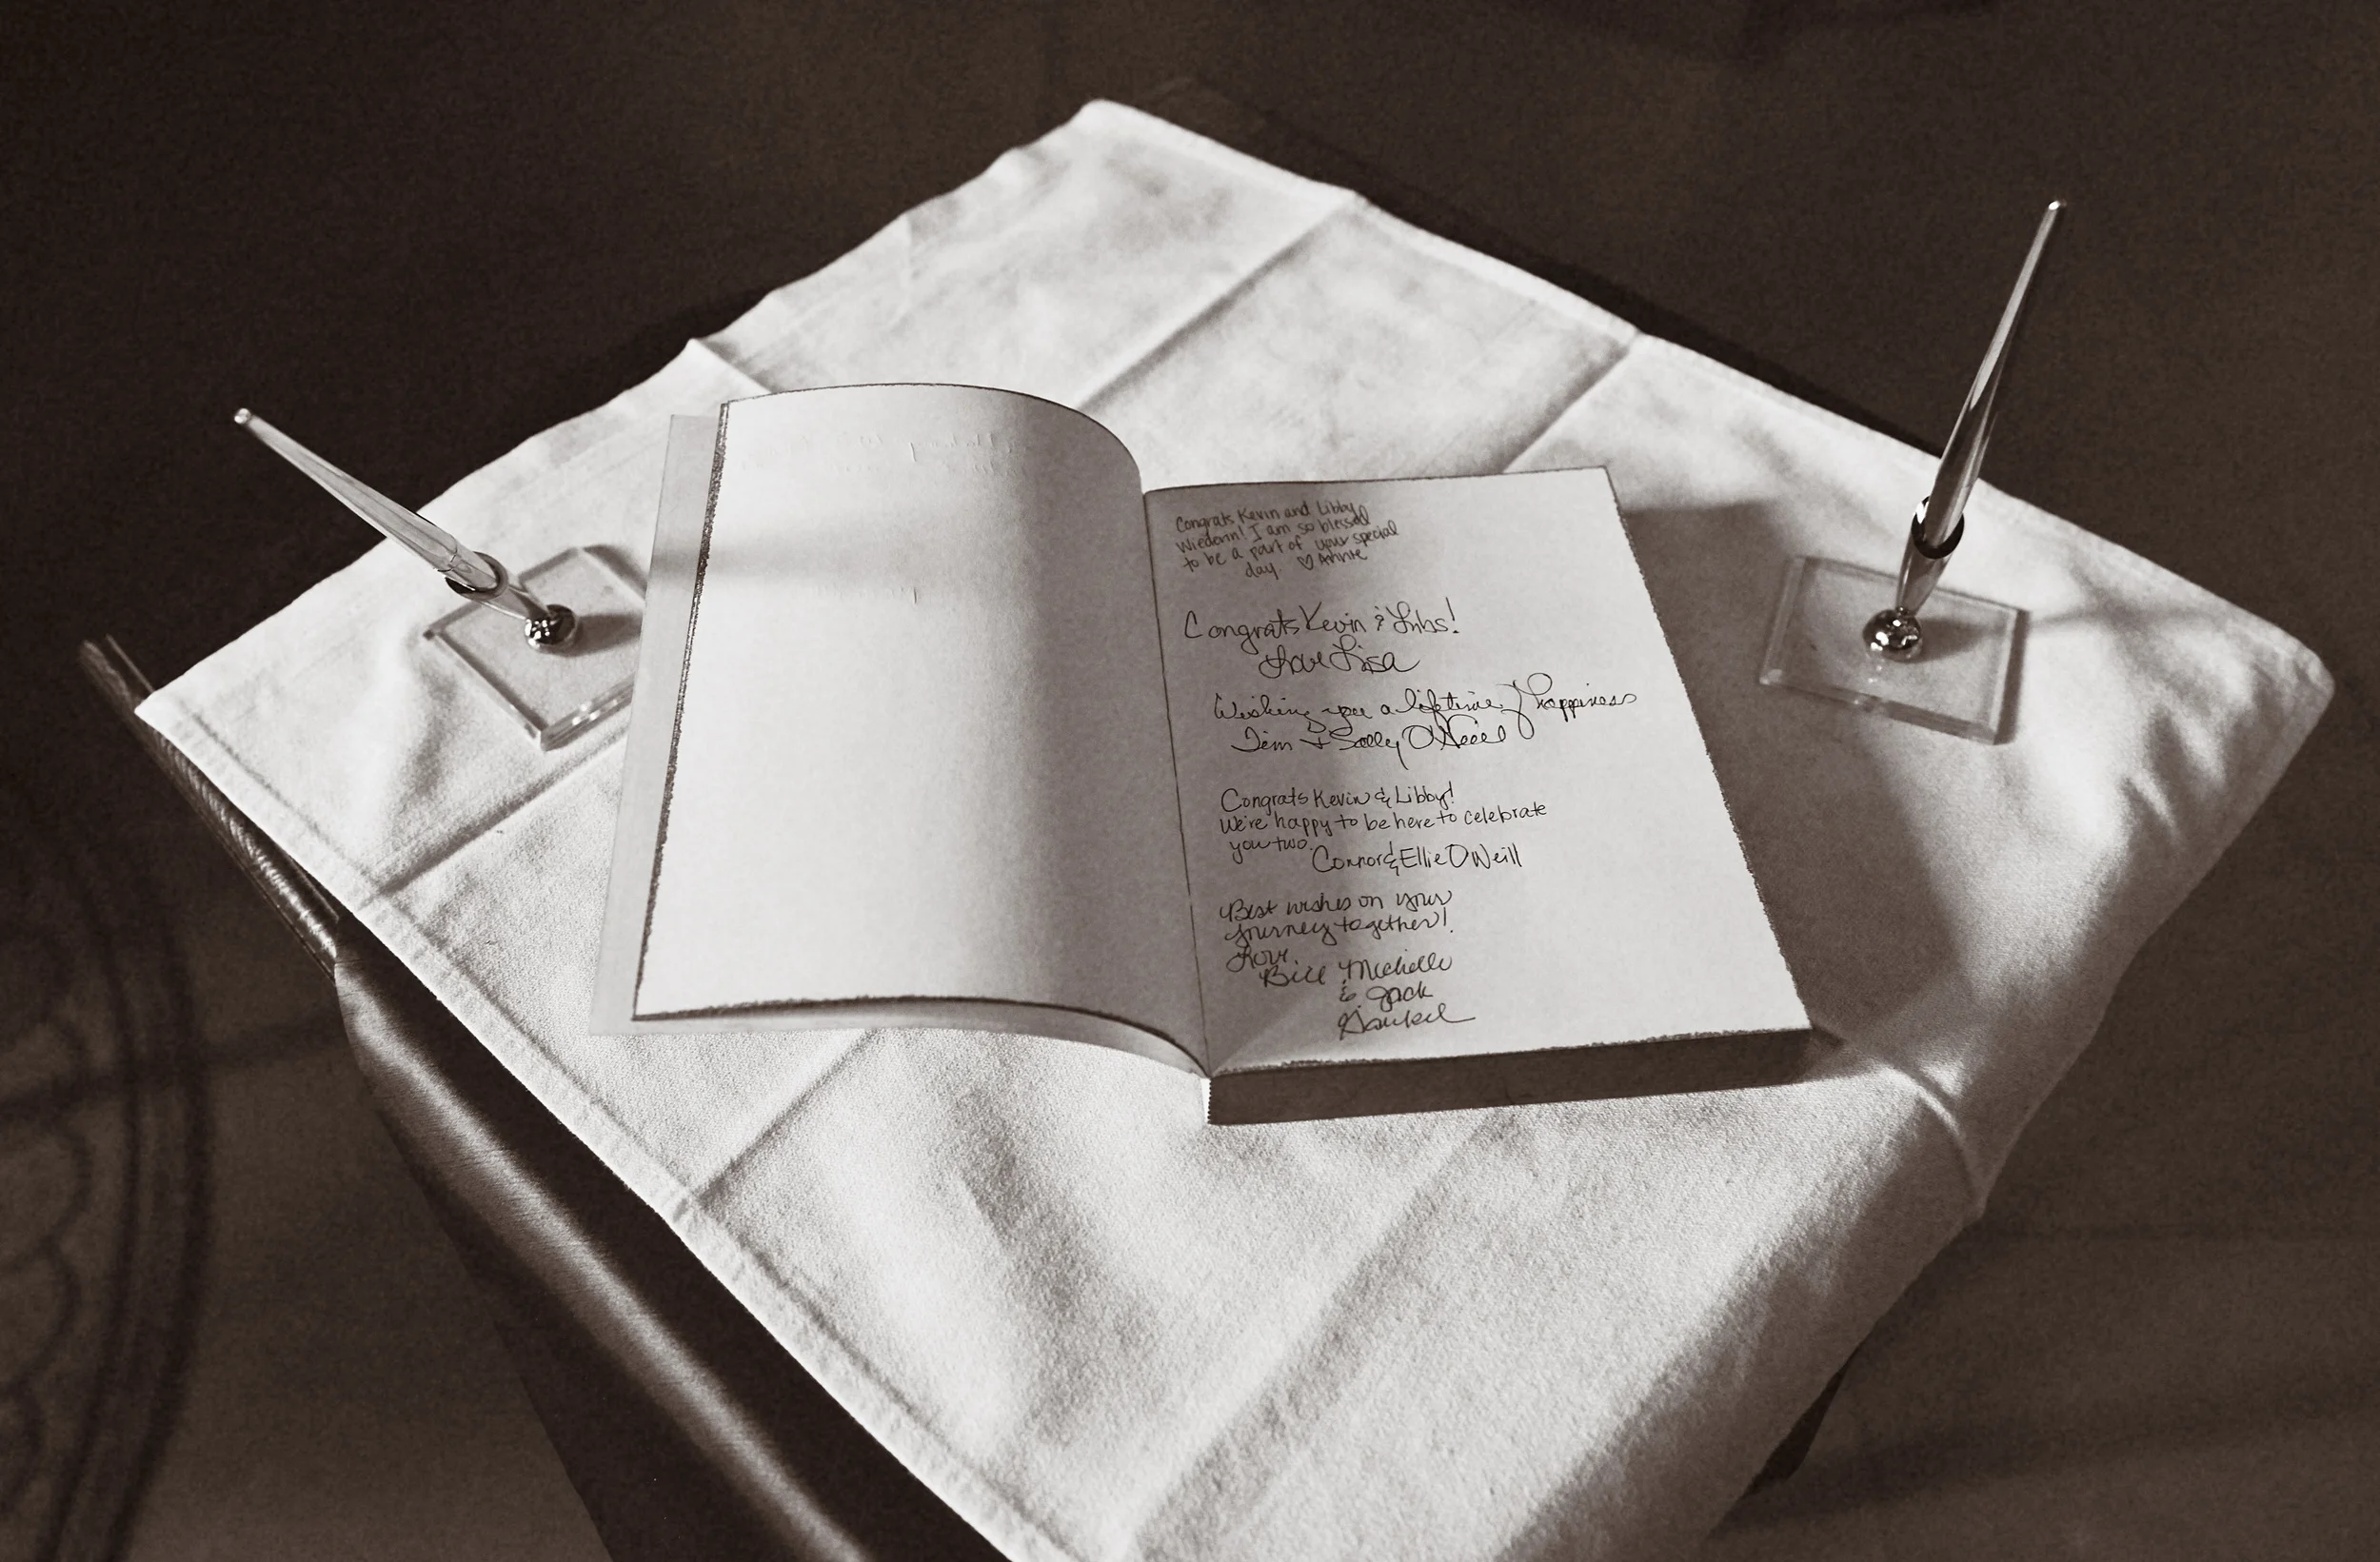 Congrats Kevin and Libby
Wiederin! I am so blessed
to be a part of your special
day ♡ Annie
Congrats Kevin & Libs!
Love Lisa
Wishing you a lifetime of happiness
Tim + Sally O'Neill
Congrats Kevin & Libby!
We're happy to be here to celebrate
you two.
Connor & Ellie O'Neill
Best wishes on your
journey together!
Love,
Bill Michelle
& Jack